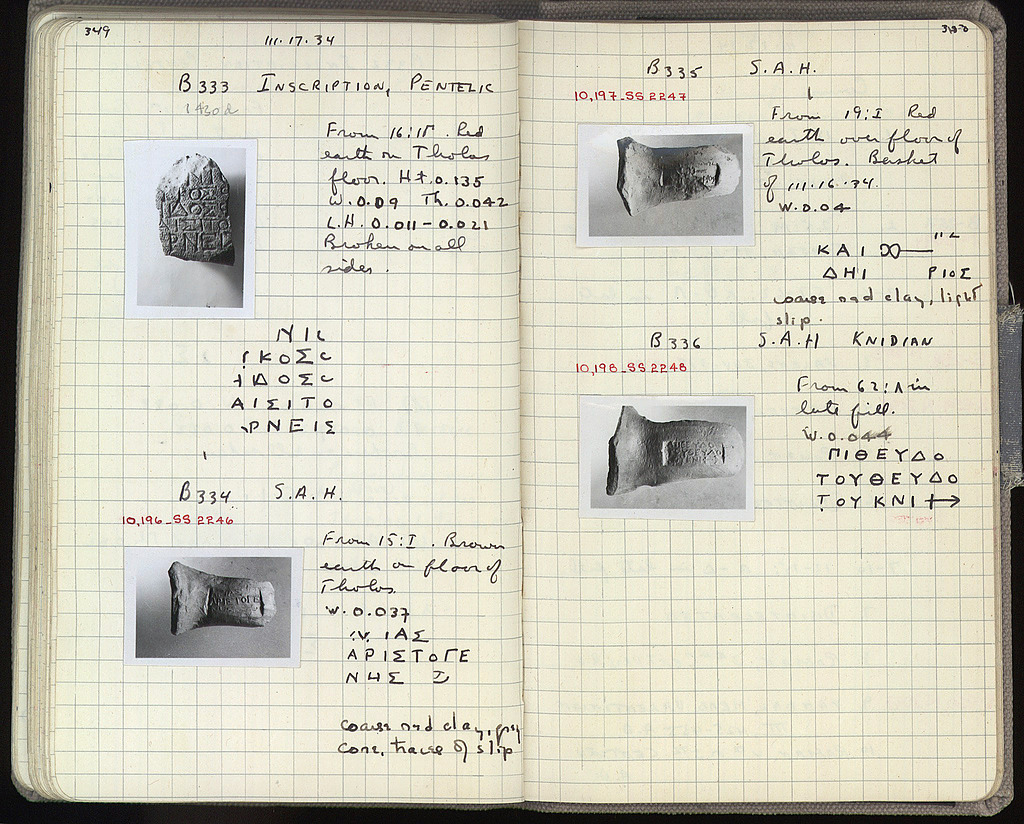 349
111.17.34
B333 INSCRIPTION, PENTELIC
1430d
From 16:ΙΓ. Red
earth on Tholos
floor. Ht. 0.135
W. 0.09 Th. 0.042
L.H. 0.011-0.021
Broken on all
sides.
ΝΙ
ΚΟΣ
ΔΟΣ
ΑΙΣΙΤΟ
ΡΝΕΙΣ
B334 S.A.H.
10,196_SS 2246
From 15:I. Brown
earth on floor of
Tholos.
W. 0.037
ΙΑΣ
ΑΡΙΣΤΟΓΕ
ΝΗΣ
coarse red clay, grey
core, traces of slip
350
B335 S.A.H.
10,197_SS 2247
From 19:I Red
earth over floor of
Tholos. Basket
of 111.16.34.
W. 0.04
ΚΑΙ
ΔΗΙ ΡΙΟΣ
coarse red clay, light
slip.
B336 S.A.H KNIDIAN
10,198_SS 2248
From 62:Λ in
late fill.
W. 0.044
ΠΙΘΕΥΔΟ
ΤΟΥΘΕΥΔΟ
ΤΟΥ ΚΝΙ